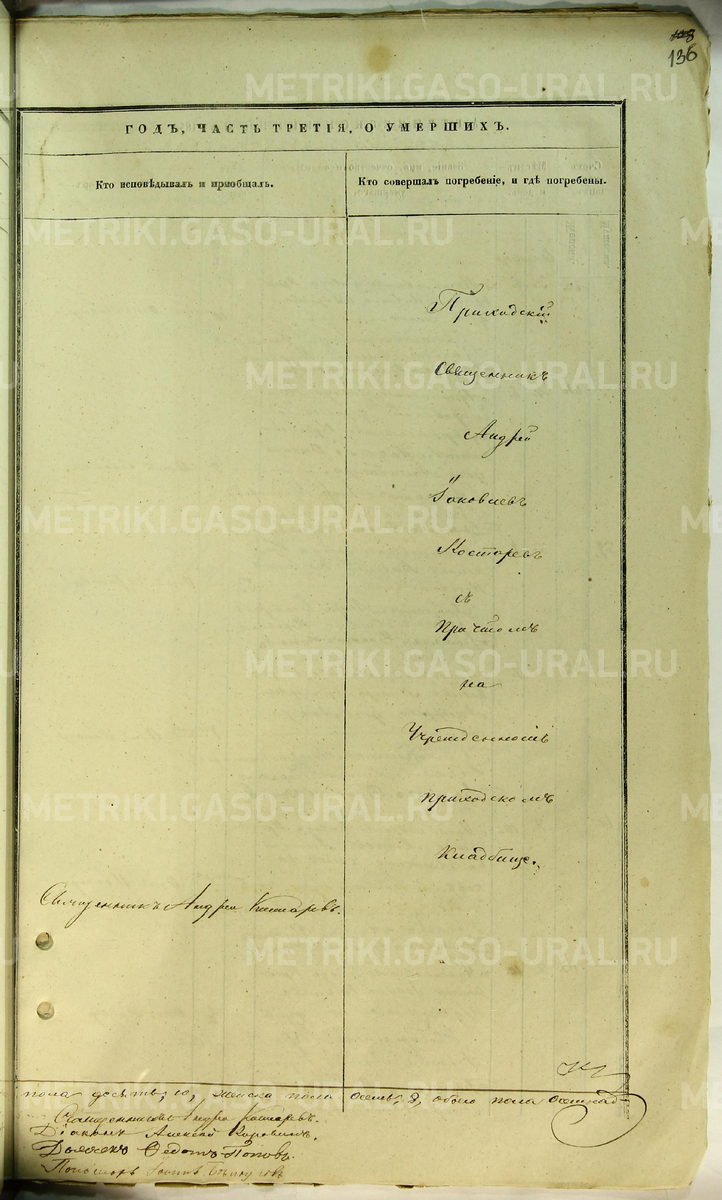 136
ГОДЪ, ЧАСТЬ ТРЕТІЯ, О УМЕРШИХЪ.
Кто исповѣдывалъ и пріобщалъ.
Кто совершалъ погребеніе, и гдѣ погребены.
Приходскій
Священникъ
Андрей
Іаковлевъ
Костаревъ
съ
Причтомъ
на
Учрежденномъ
приходскомъ
Кладбище.
Священникъ Андрей Костаревъ.
пола десять, 10, женска пола осемь, 8, обоего пола осемнад-
Священникъ Андрей Костаревъ.
Діаконъ Алексей
Дьячекъ Ѳедотъ Поповъ.
Пономарь
METRIKI.GASO-URAL.RU
METRIKI.GASO-URAL.RU
METRIKI.GASO-URAL.RU
METRIKI.GASO-URAL.RU
METRIKI.GASO-URAL.RU
METRIKI.GASO-URAL.RU
METRIKI.GASO-URAL.RU